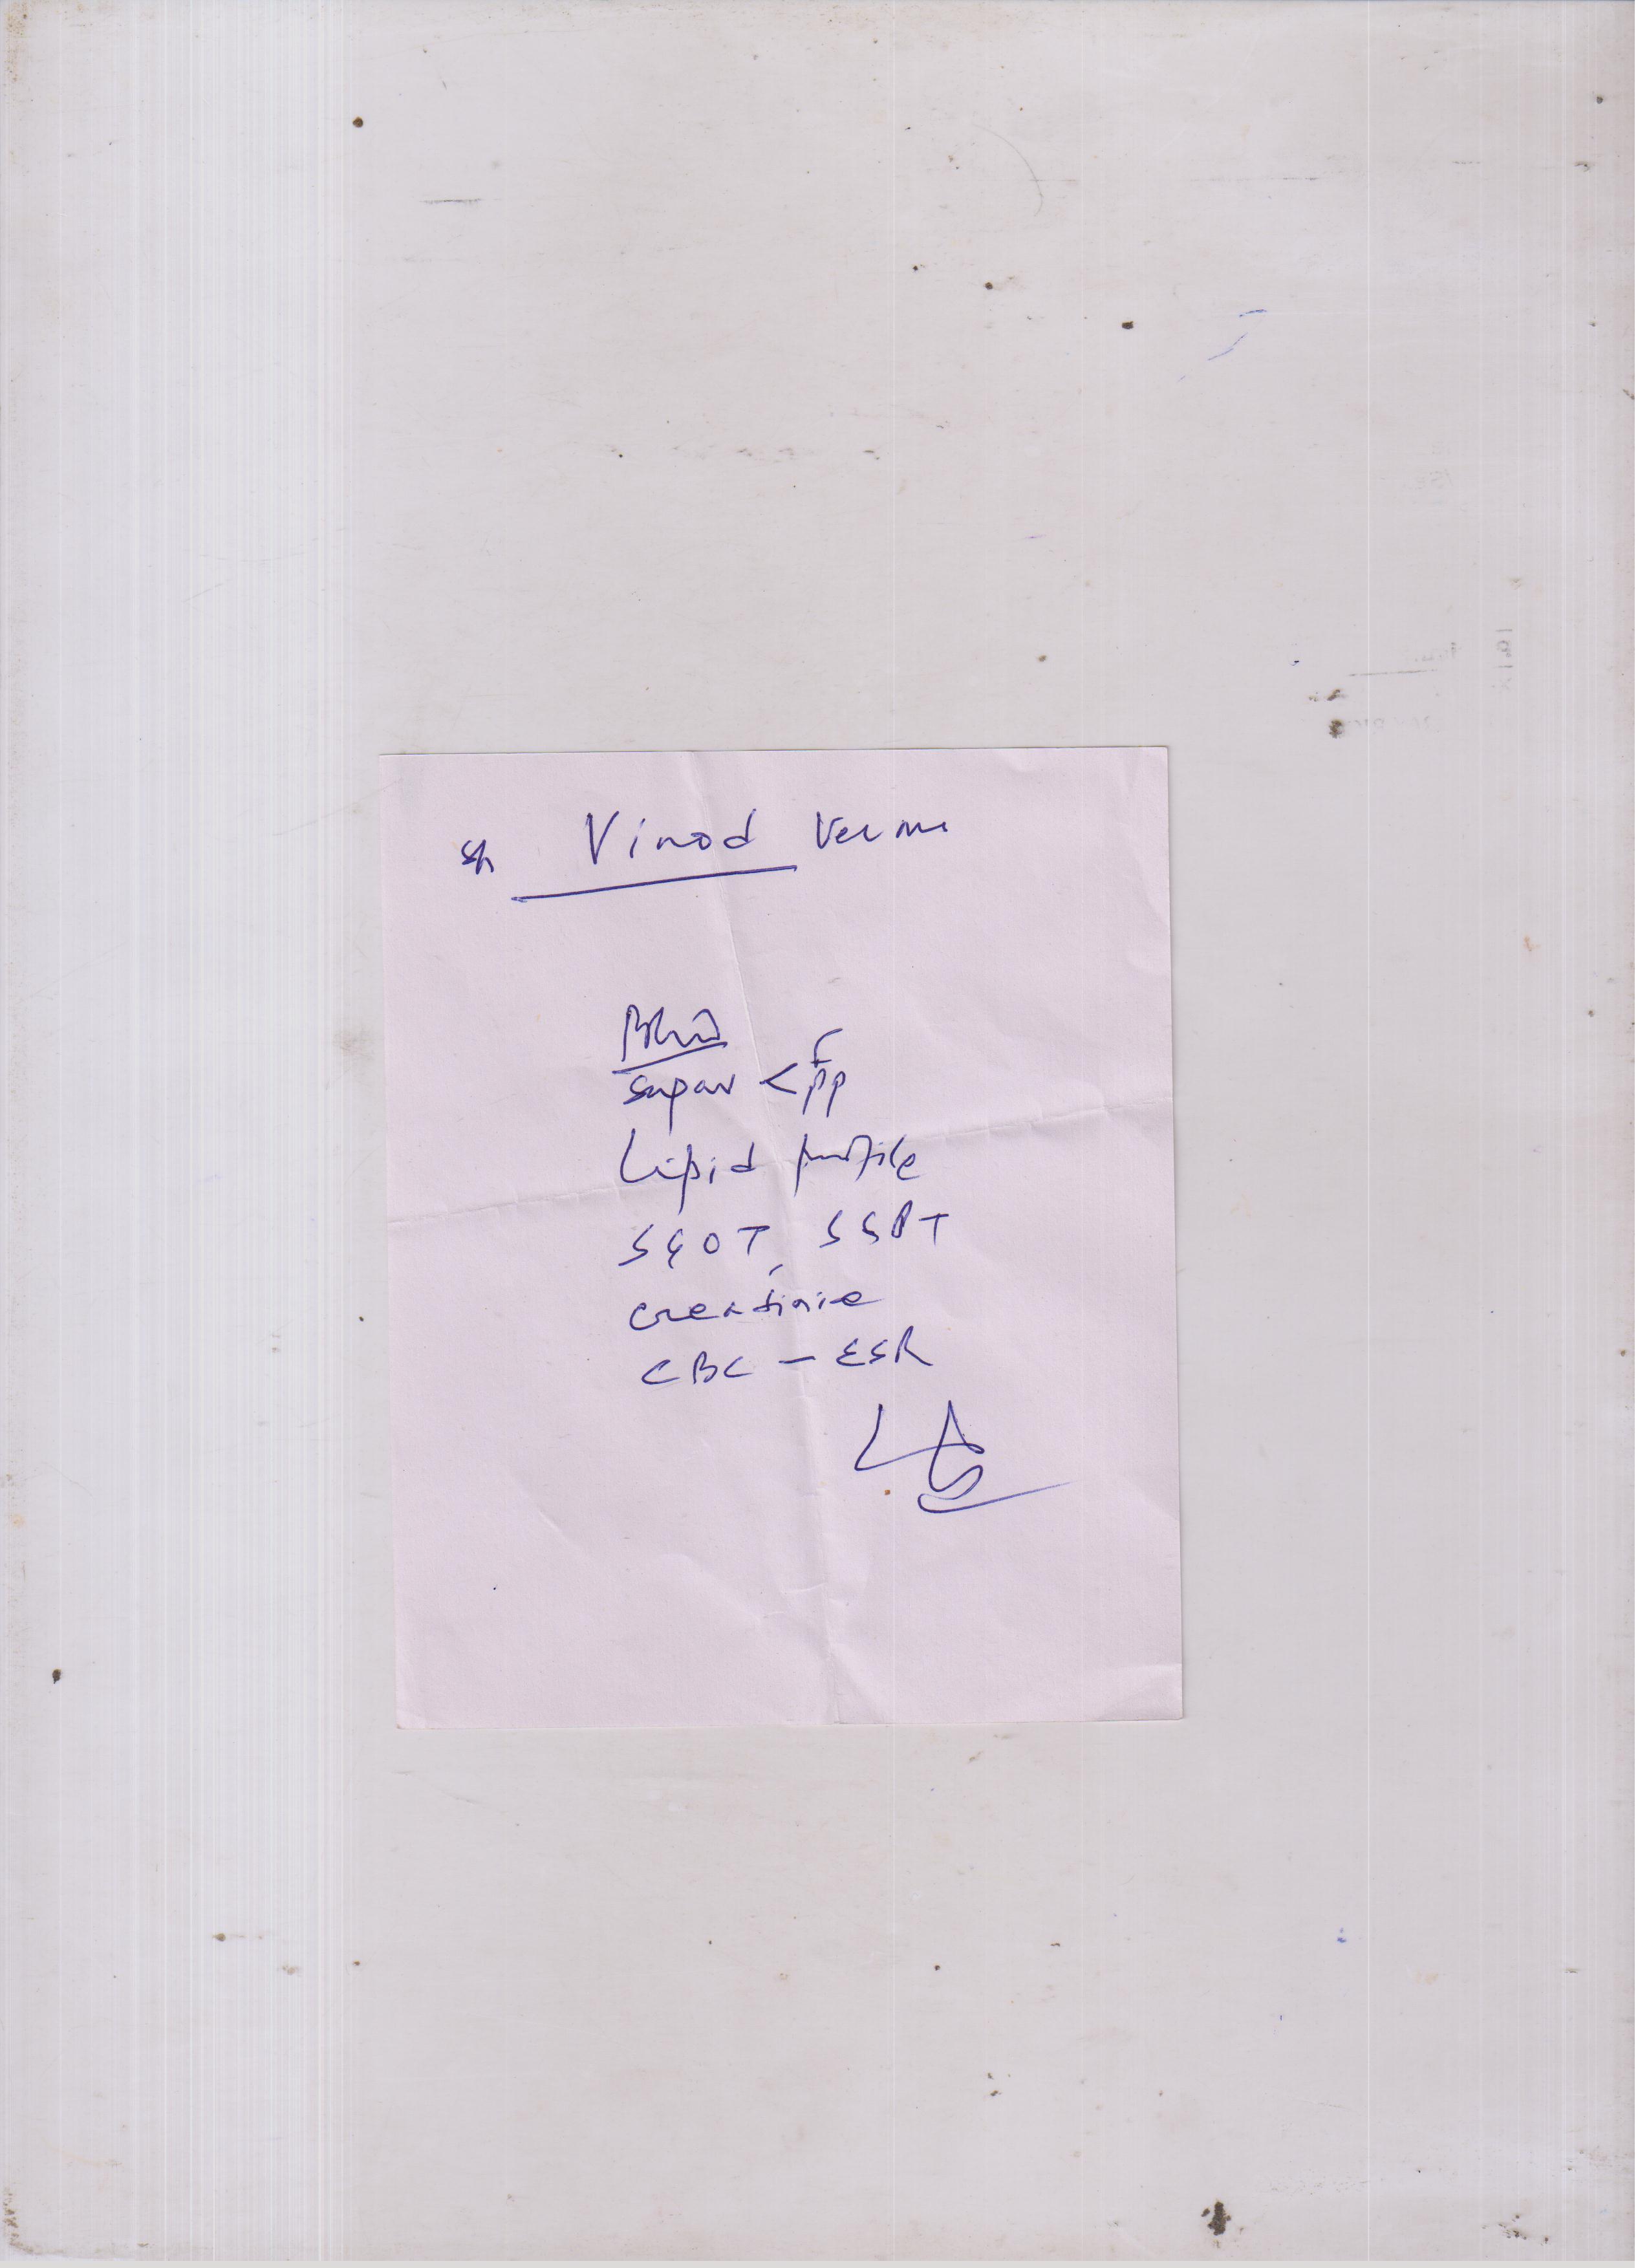 Sh Vinod Verma
Blood
F
sugar < pp
Lipid profile
SGOT, SGPT
creatinine
CBC - ESR